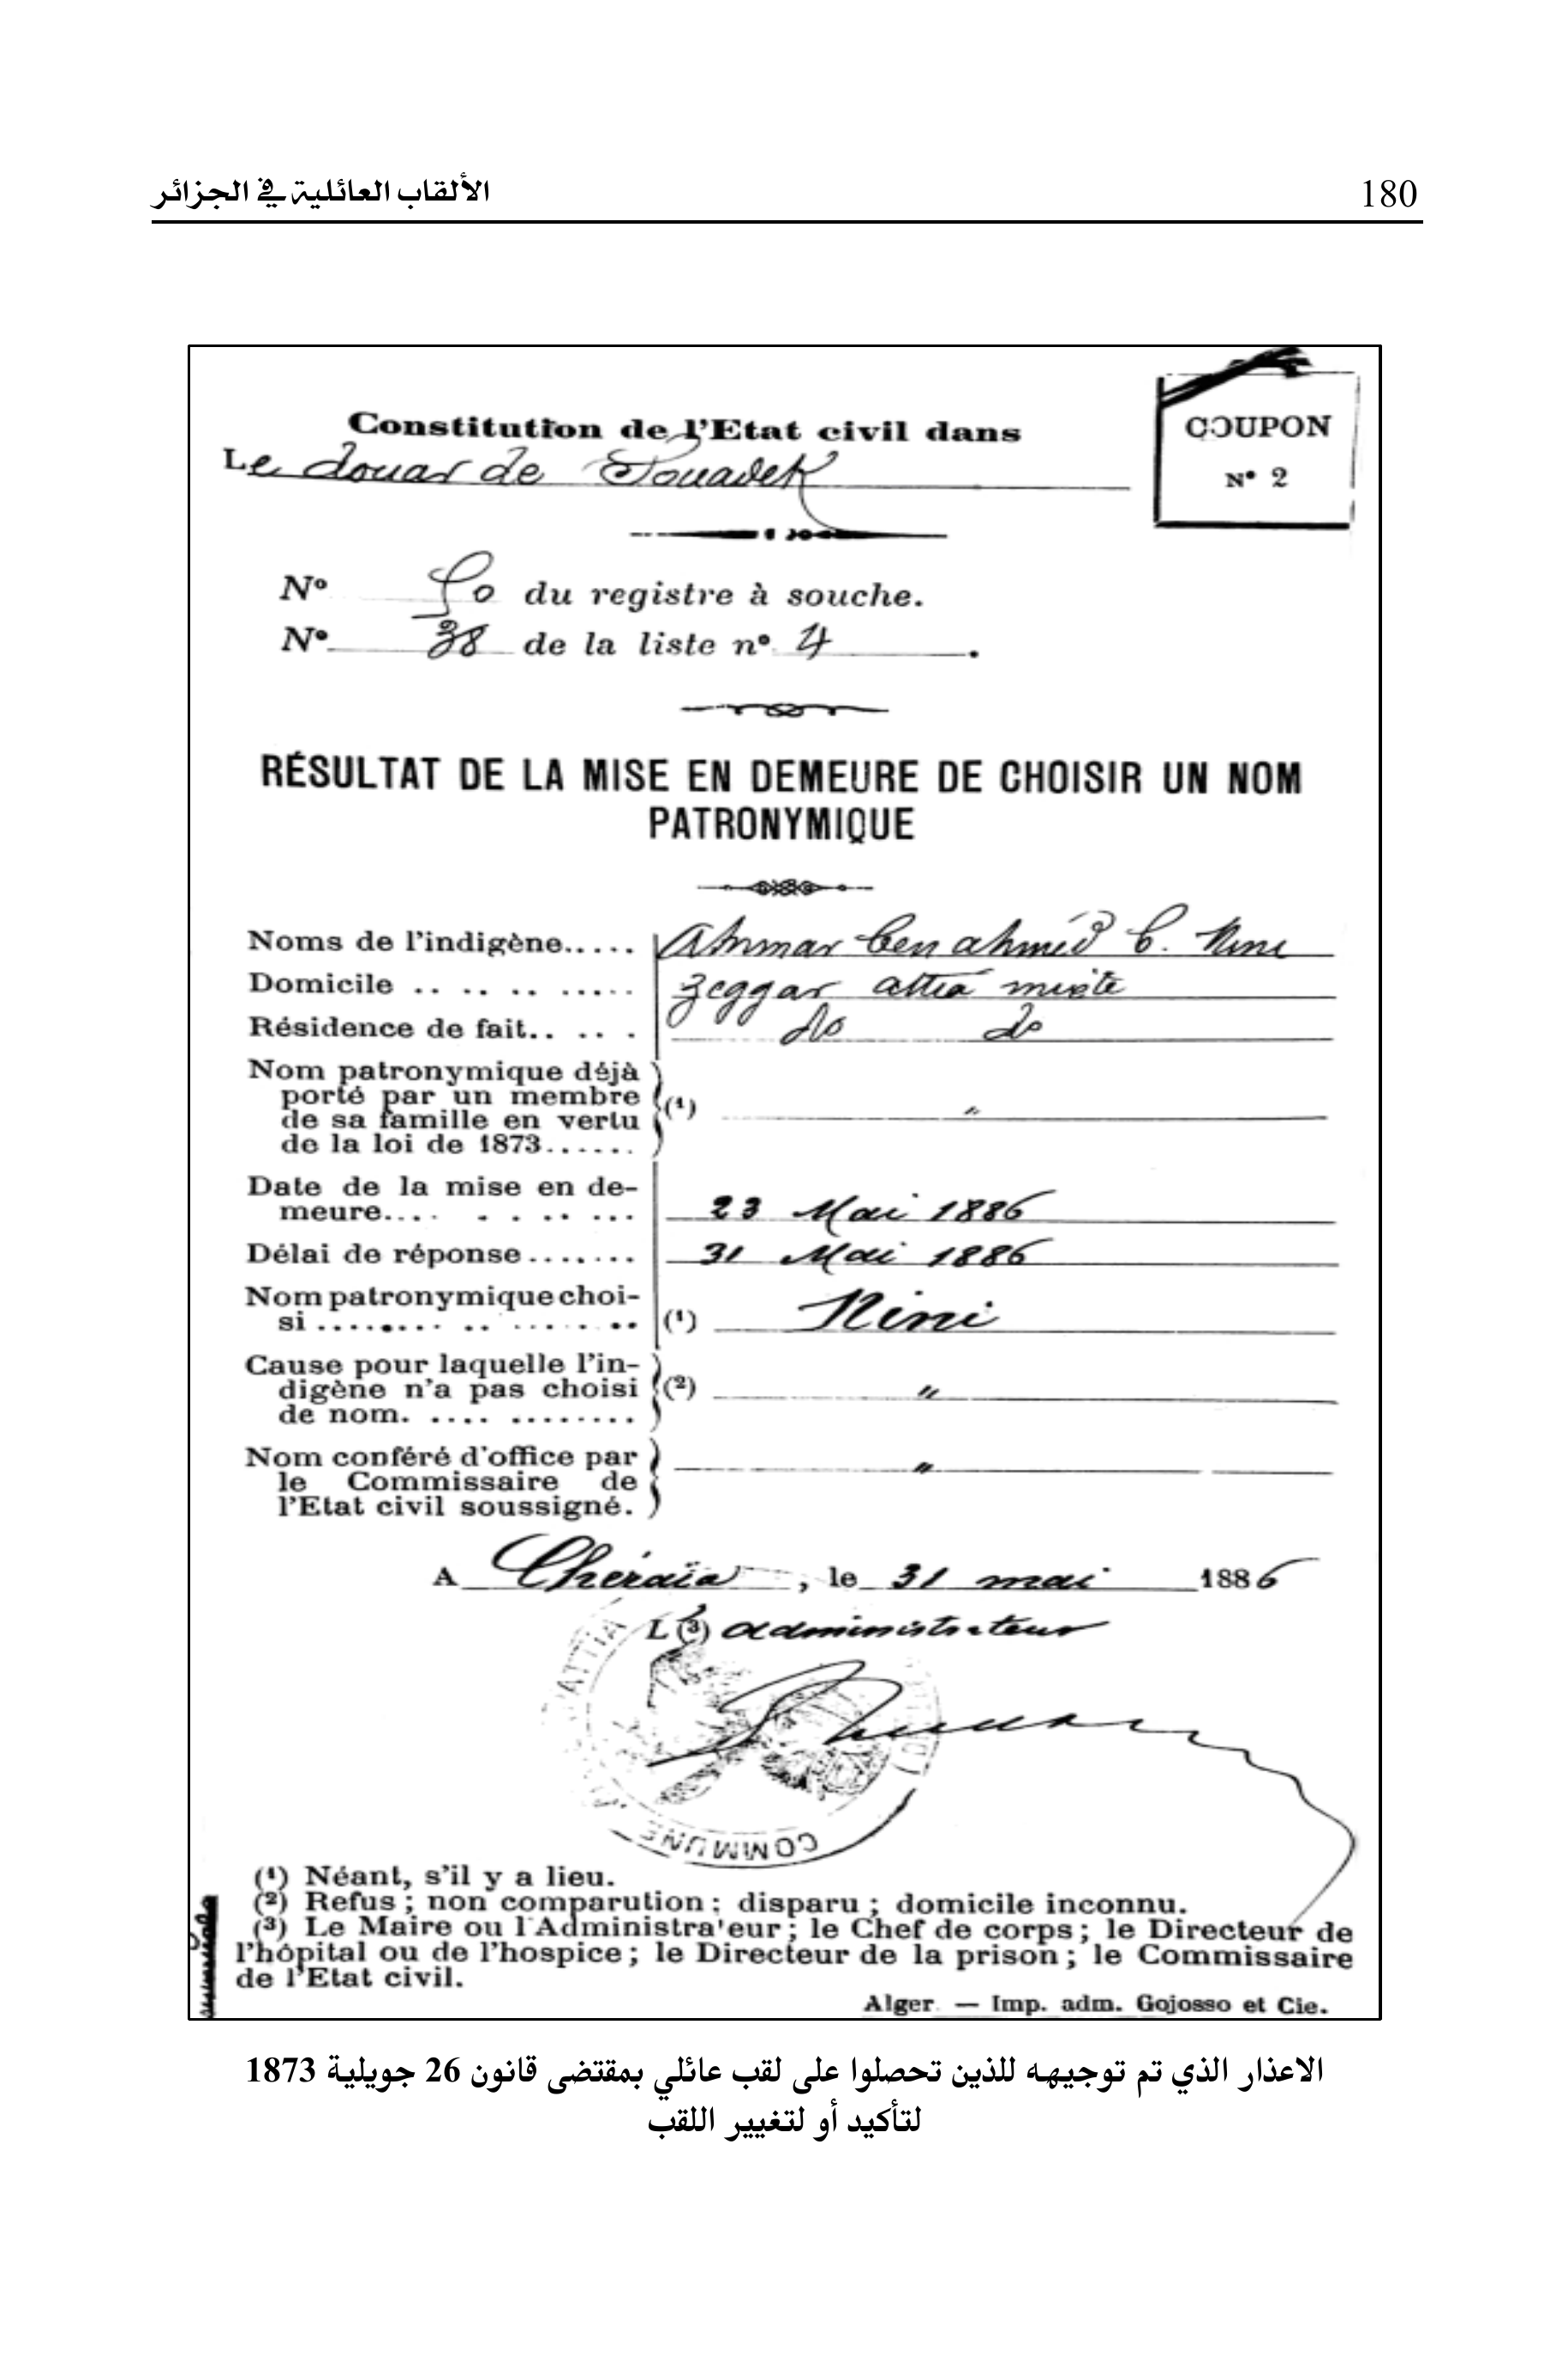 180
الألقاب العائلية في الجزائر
Constitution de l'Etat civil dans
Le douar de
COUPON
N° 2
N° du registre à souche.
N° 38 de la liste n° 4 .
RÉSULTAT DE LA MISE EN DEMEURE DE CHOISIR UN NOM
PATRONYMIQUE
Noms de l'indigène..... Ammar ben ahmed b. Nini
Domicile .. .. .. ..... Zeggar attia mixte
Résidence de fait.. .. . do do
Nom patronymique déjà
porté par un membre
de sa famille en vertu
de la loi de 1873...... (1) "
Date de la mise en de-
meure.... . . .. ... 23 Mai 1886
Délai de réponse....... 31 Mai 1886
Nom patronymique choi-
si ........ .. ....... (1) Nini
Cause pour laquelle l'in-
digène n'a pas choisi (2) "
de nom. .... ........
Nom conféré d'office par "
le Commissaire de
l'Etat civil soussigné.
A Chéraïa, le 31 mai 1886
L (3) administrateur
ATTIA
COMMUNE
(1) Néant, s'il y a lieu.
(2) Refus ; non comparution ; disparu ; domicile inconnu.
(3) Le Maire ou l'Administra'eur ; le Chef de corps ; le Directeur de
l'hôpital ou de l'hospice ; le Directeur de la prison ; le Commissaire
de l'Etat civil.
Alger. — Imp. adm. Gojosso et Cie.
الاعذار الذي تم توجيهه للذين تحصلوا على لقب عائلي بمقتضى قانون 26 جويلية 1873
لتأكيد أو لتغيير اللقب